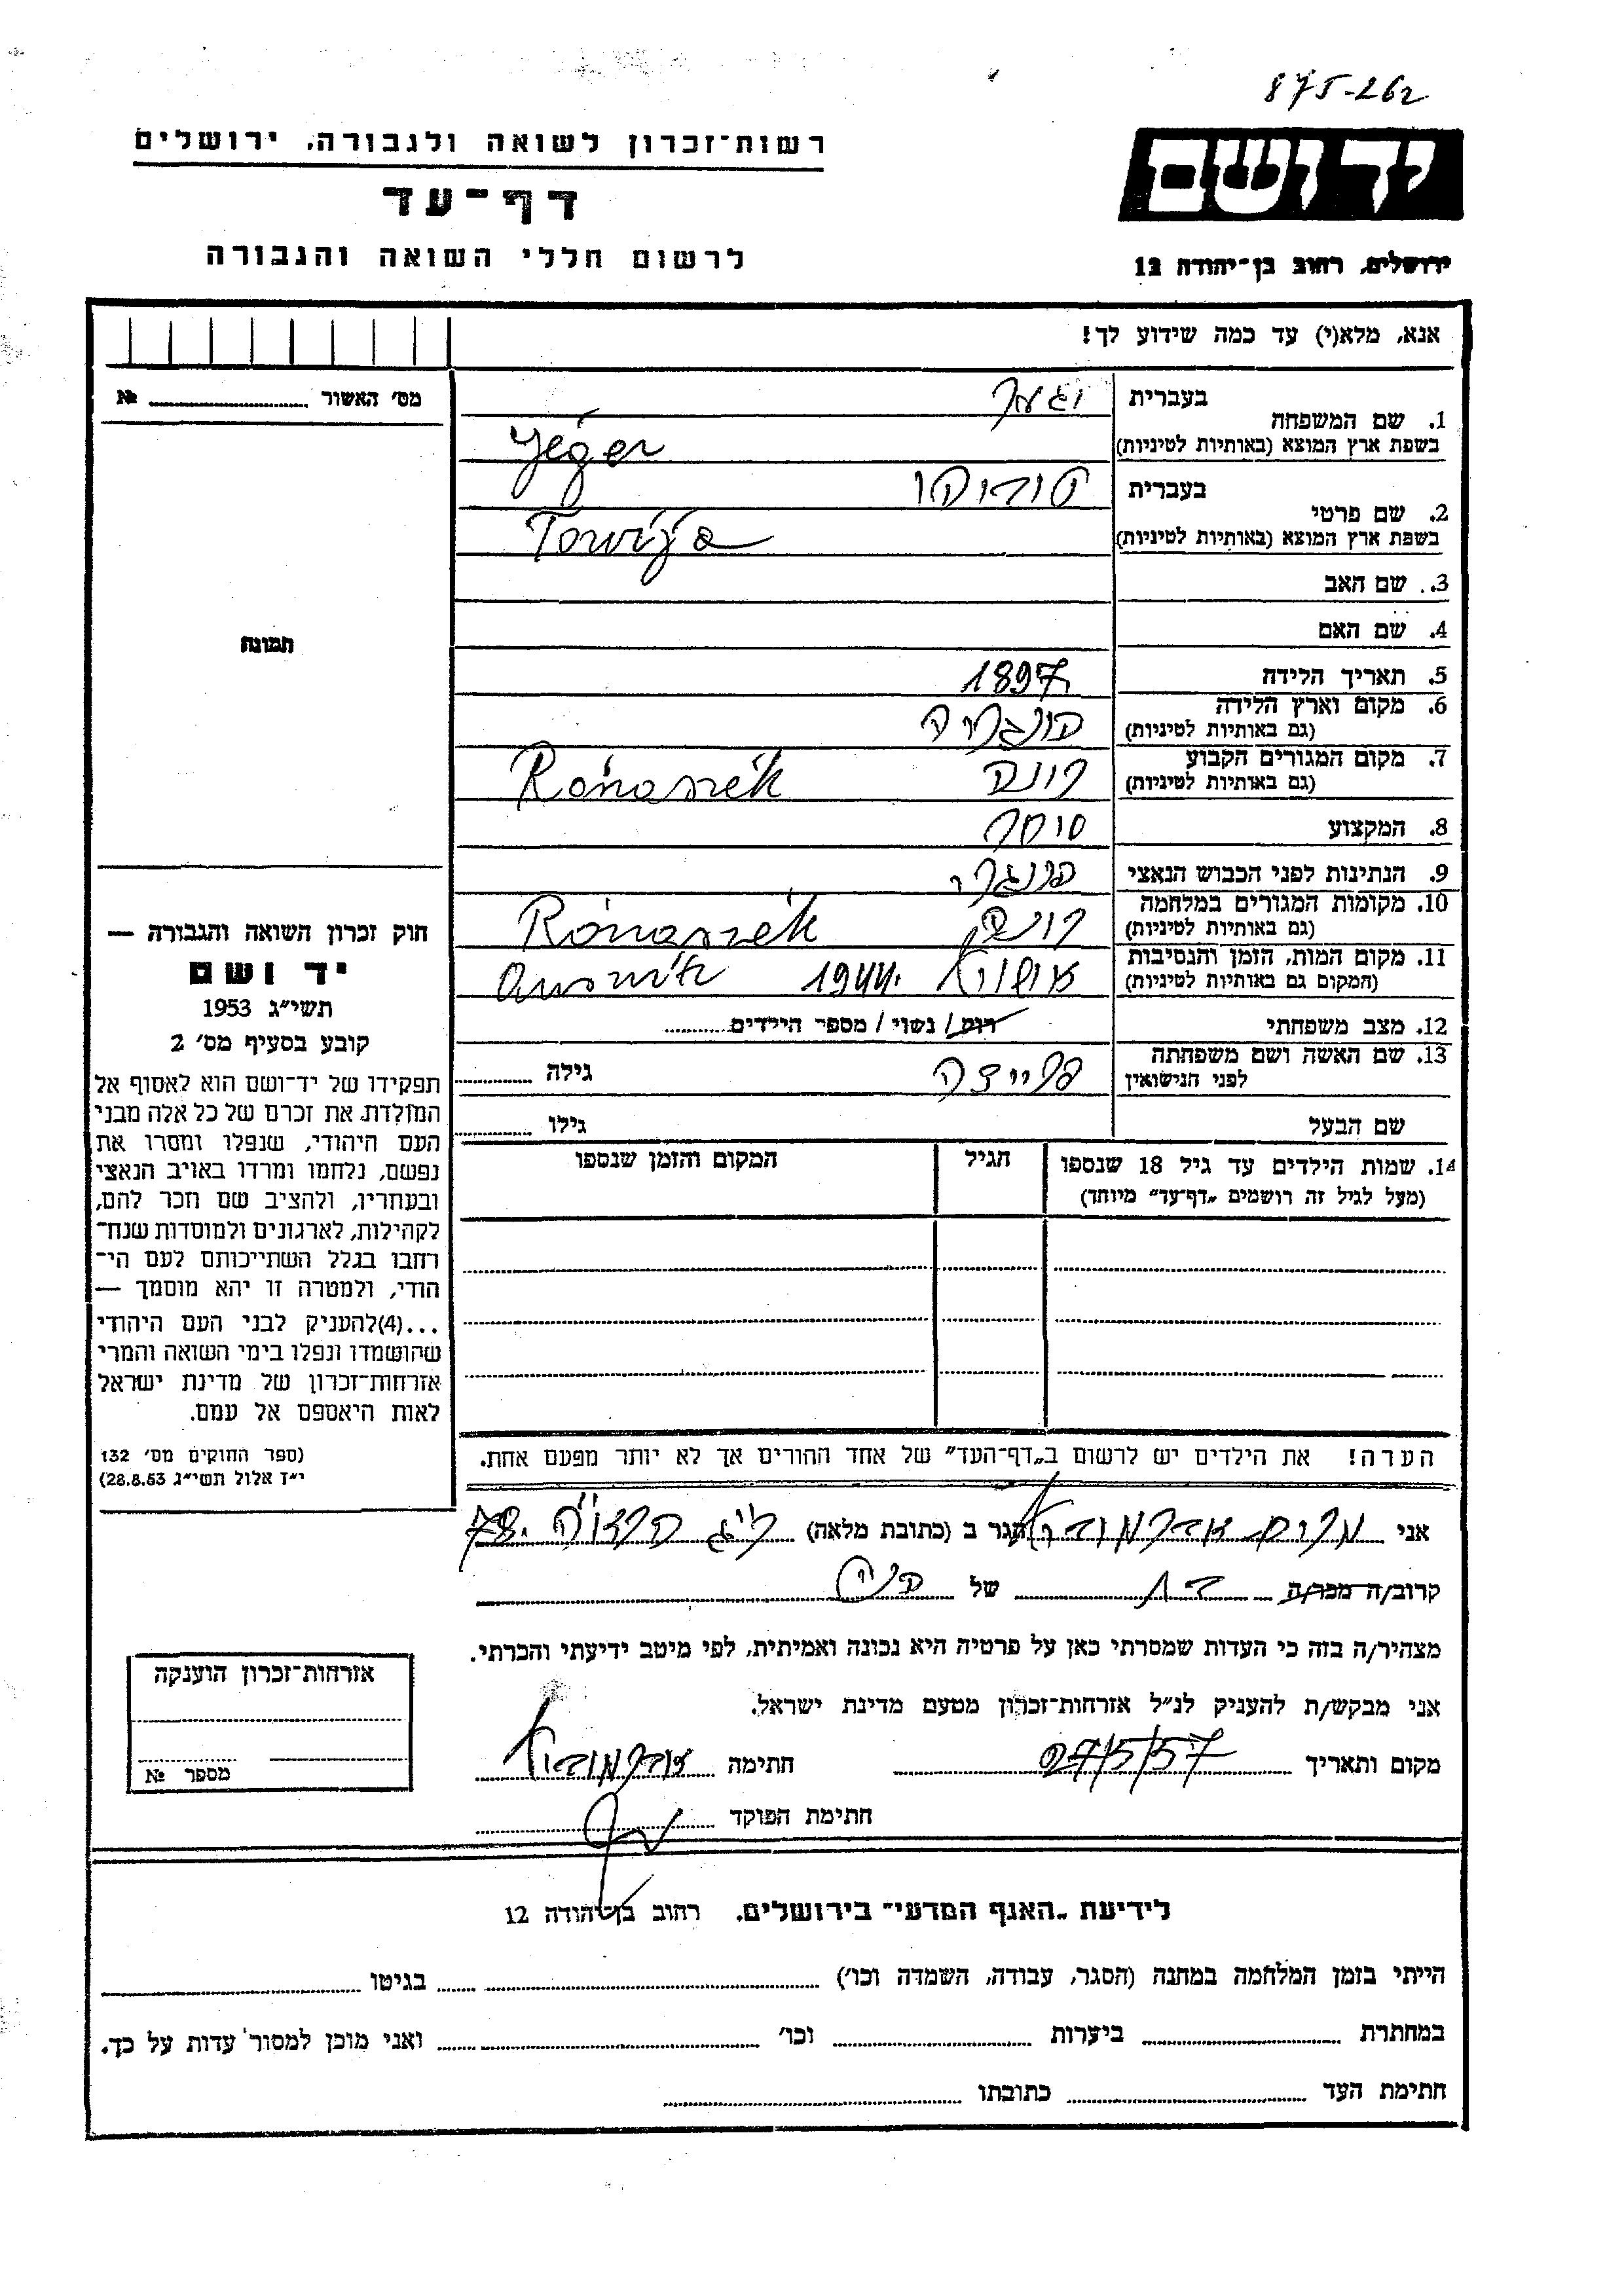 875-262
רשות־זכרון לשואה ולגבורה, ירושלים
יד ושם
דף־עד
לרשום חללי השואה והגבורה
ירושלים, רחוב בן־יהודה 12
אנא, מלא(י) עד כמה שידוע לך!
מס׳ האשור № 
תמונה
חוק זכרון השואה והגבורה —
יד ושם
תשי״ג 1953
קובע בסעיף מס׳ 2
תפקידו של יד־ושם הוא לאסוף אל
המולדת את זכרם של כל אלה מבני
העם היהודי, שנפלו ומסרו את
נפשם, נלחמו ומרדו באויב הנאצי
ובעוזריו, ולהציב שם וזכר להם,
לקהילות, לארגונים ולמוסדות שנח־
רבו בגלל השתייכותם לעם הי־
הודי, ולמטרה זו יהא מוסמך —
...(4)להעניק לבני העם היהודי
שהושמדו ונפלו בימי השואה והמרי
אזרחות־זכרון של מדינת ישראל
לאות היאספם אל עמם.
(ספר החוקים מס׳ 132
י״ז אלול תשי״ג 28.8.53)
1. שם המשפחה בעברית
בשפת ארץ המוצא (באותיות לטיניות) Jéger
2. שם פרטי בעברית
בשפת ארץ המוצא (באותיות לטיניות) Towija
3. שם האב
4. שם האם
5. תאריך הלידה 1897
6. מקום וארץ הלידה הונגריה
(גם באותיות לטיניות)
7. מקום המגורים הקבוע Rónaszék
(גם באותיות לטיניות)
8. המקצוע סוחר
9. הנתינות לפני הכבוש הנאצי הונגרי
10. מקומות המגורים במלחמה Rónaszék
(גם באותיות לטיניות)
11. מקום המות, הזמן והנסיבות 1944
(המקום גם באותיות לטיניות)
12. מצב משפחתי רוק / נשוי / מספר הילדים
13. שם האשה ושם משפחתה
לפני הנישואין גילה
שם הבעל גילו
14. שמות הילדים עד גיל 18 שנספו הגיל המקום והזמן שנספו
(מעל לגיל זה רושמים „דף־עד״ מיוחד)
הערה! את הילדים יש לרשום ב„דף־העד״ של אחד ההורים אך לא יותר מפעם אחת.
אני הגר ב (כתובת מלאה) 78
קרוב/ה מכר/ה של
מצהיר/ה בזה כי העדות שמסרתי כאן על פרטיה היא נכונה ואמיתית, לפי מיטב ידיעתי והכרתי.
אני מבקש/ת להעניק לנ״ל אזרחות־זכרון מטעם מדינת ישראל.
מקום ותאריך 27/5/57 חתימה
חתימת הפוקד
אזרחות־זכרון הוענקה
מספר №
לידיעת „האגף המדעי״ בירושלים. רחוב בן־יהודה 12
הייתי בזמן המלחמה במחנה (הסגר, עבודה, השמדה וכו׳) בגיטו
במחתרת ביערות וכו׳ ואני מוכן למסור עדות על כך.
חתימת העד כתובתו